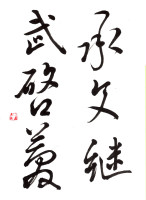 承文继
武啓